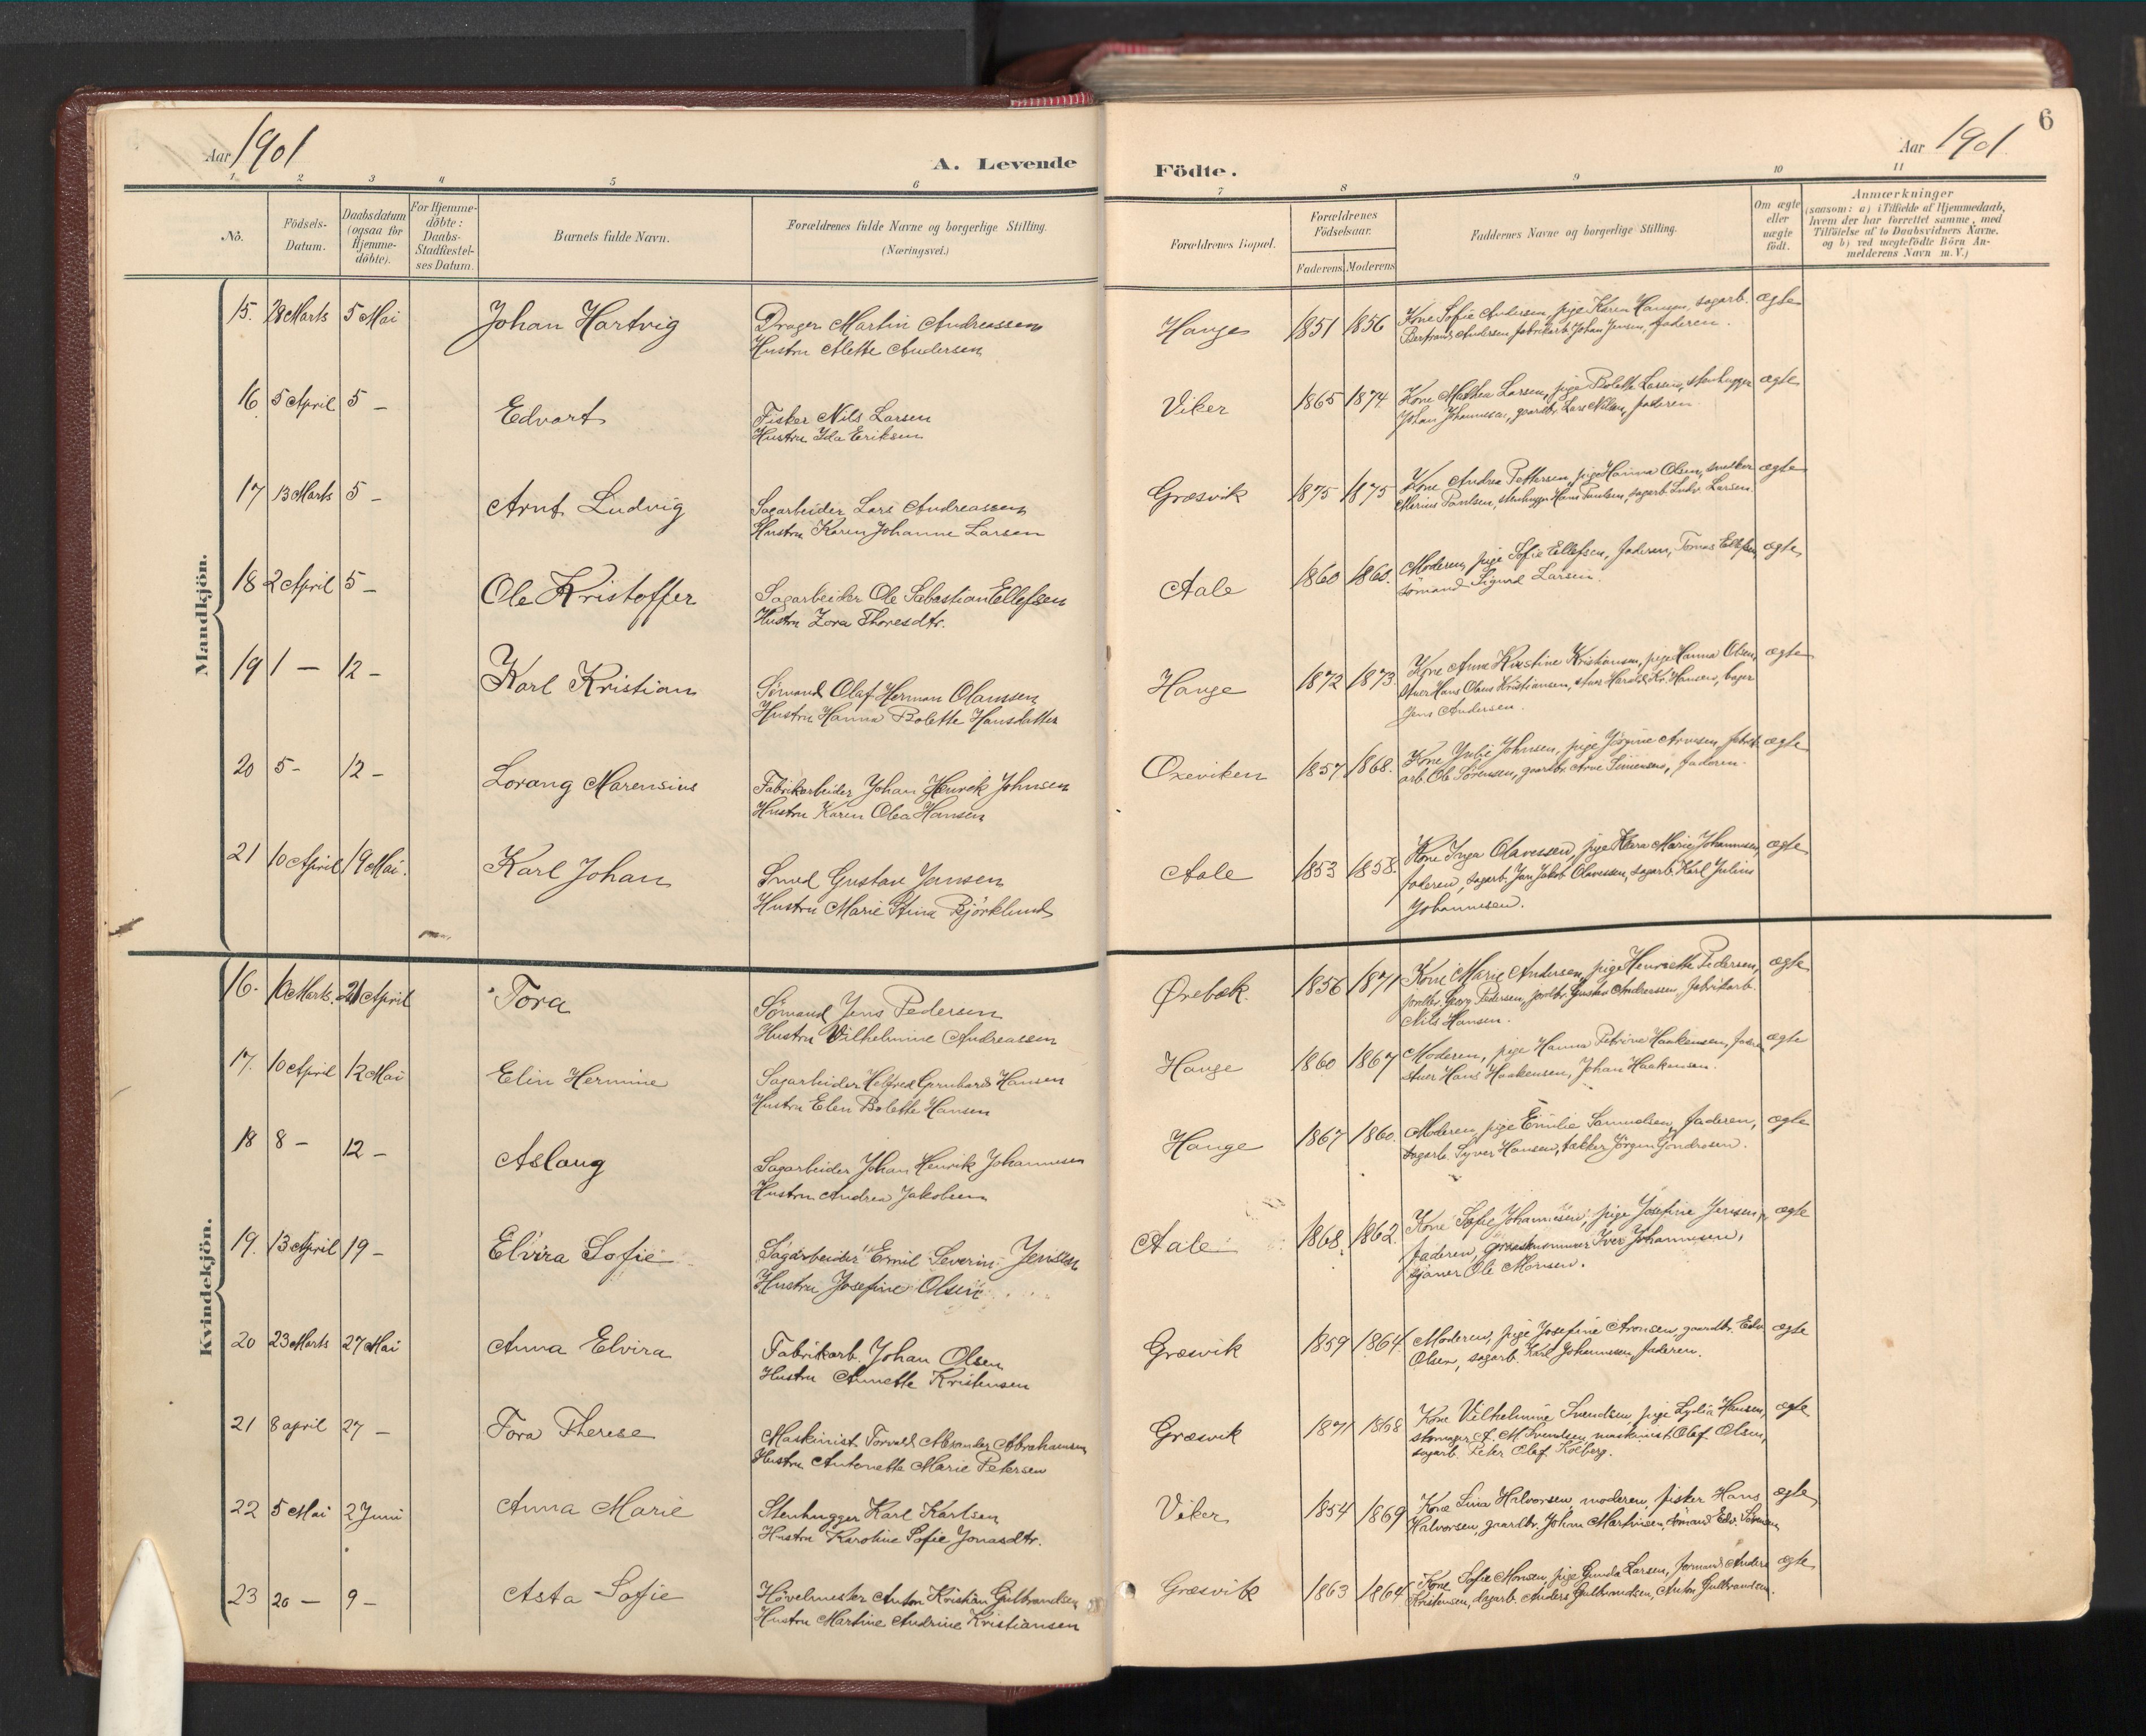 Aar 1901
A. Levende
Födte.
Aar 1901
6
1 2 3 4 5 6 7 8 9 10 11
No.
Födsels-
Datum.
Daabsdatum
(ogsaa for
Hjemme-
döbte).
For Hjemme-
döbte:
Daabs-
Stadfæstel-
ses Datum.
Barnets fulde Navn.
Forældrenes fulde Navne og borgerlige Stilling.
(Næringsvei.)
Forældrenes Bopæl.
Forældrenes
Födselsaar.
Faderens Moderens
Faddernes Navne og borgerlige Stilling.
Om ægte
eller
uægte
födt.
Anmærkninger
(saasom: a) i Tilfælde af Hjemmedaab,
hvem der har forrettet samme, med
Tilföielse af to Daabsvidners Navne,
og b) ved uægtefödte Börn An-
melderens Navn m. V.)
Mandkjön.
15. 28 Marts 5 Mai Johan Hartvig
Drager Martin Andreassen
Hustru Alette Andersen
Hauge 1851 1856
Kone Sofie Andersen, pige Karen Hansen, sagarb.
Bertrand Andersen, fabrikarb. Johan Jensen, faderen.
ægte
16 5 April 5 – Edvart
Fisker Nils Larsen
Hustru Ida Eriksen
Viker 1865 1874
Kone Mathea Larsen, pige Bolette Larsen, stenhugger
Johan Johannessen, gaardbr. Lars Nilsen, faderen.
ægte
17 13 Marts 5 – Arnt Ludvig
Sagarbeider Lars Andreassen
Hustru Karen Johanne Larsen
Græsvik 1875 1875
Kone Andrea Pettersen, pige Hanna Olsen, snedker
Marius Paulsen, stenhugger Hans Paulsen, sagarb. Ludv. Larsen.
ægte
18 2 April 5 – Ole Kristoffer
Sagarbeider Ole Sebastian Ellefsen
Hustru Zora Thoresdtr.
Aale 1860 1860.
Moderen, pige Sofie Ellefsen, faderen, Tomas Ellefsen,
sömand Sigurd Larsen.
ægte
19 1 – 12 – Karl Kristian
Sömand Olaf Herman Olaussen
Hustru Hanna Bolette Hansdatter
Hauge 1872 1873
Kone Anne Kirstine Kristiansen, pige Hanna Olsen,
stuer Hans Olaus Kristiansen, stuer Harald Kr. Hansen, bager
Jens Andersen.
ægte
20 5 – 12 – Lorang Marensius
Fabrikarbeider Johan Henrik Johnsen
Hustru Karen Olea Hansen
Oxeviken 1857 1868.
Kone Julie Johnsen, pige Jörgine Arnesen, fabrik-
arb. Ole Sörensen, gaardbr. Arne Simensen, faderen.
ægte
21 10 April 19 Mai. Karl Johan
Smed Gustav Jansen
Hustru Marie Stina Björklund
Aale 1853 1858.
Kone Inga Olavessen, pige Klara Marie Johannessen,
faderen, sagarb. Jan Jakob Olavessen, sagarb. Karl Julius
Johannessen.
ægte
Kvindekjön.
16. 10 Marts. 21 April Tora
Sömand Jens Pedersen
Hustru Vilhelmine Andreassen
Ørebæk. 1856 1871
Kone Marie Andersen, pige Henriette Pedersen,
jordbr. Georg Pedersen, jordbr. Gustav Andreassen, fabrikarb.
Nils Hansen.
ægte
17. 10 April 12 Mai Elin Hermine
Sagarbeider Helfred Gernhard Hansen
Hustru Elen Bolette Hansen
Hauge 1860 1867
Moderen, pige Hanna Petrine Haakensen,
stuer Hans Haakensen, Johan Haakensen.
ægte
18 8 – 12 – Aslaug
Sagarbeider Johan Henrik Johannesen
Hustru Andrea Jakobsen
Hauge 1867 1860.
Moderen, pige Emilie Samuelsen, faderen,
sagarb. Syver Hansen, Jörgen Gondrosen.
ægte
19. 13 April 19 – Elvira Sofie
Sagarbeider Emil Severin Jensen
Hustru Josefine Olsen
Aale 1868. 1862.
Kone Sofie Johannesen, pige Josefine Jensen,
faderen, Iver Johannesen,
Ole Monsen.
ægte
20 23 Marts 27 Mai Anna Elvira
Fabrikarb. Johan Olsen
Hustru Annette Kristensen
Græsvik 1859 1864
Moderen, pige Josefine Aronsen, gaardbr. Edv.
Olsen, sagarb. Karl Johannesen, faderen.
ægte
21 8 april 27 – Tora Therese
Maskinist Torvald Alexander Abrahamsen
Hustru Antonette Marie Petersen
Græsvik 1871 1868
Kone Vilhelmine Svendsen, pige Lydia Hansen,
A. M. Svendsen, maskinist Olaf Olsen,
sagarb. Peter Olaf Kolberg.
ægte
22 5 Mai 2 Juni Anna Marie
Stenhugger Karl Karlsen
Hustru Karoline Sofie Jonasdtr.
Viker 1854 1869
Kone Lina Halvorsen, moderen, fisker Hans
Halvorsen, gaardbr. Johan Martinsen, sömand Edv. Sörensen
ægte
23 20 – 9 – Asta Sofie
Hövelmester Anton Kristian Gulbrandsen
Hustru Martine Andrine Kristiansen
Græsvik 1863 1864
Kone Sofie Monsen, pige Gunda Larsen, formand Anders
Kristensen, dagarb. Anders Gulbrandsen, Anton Gulbrandsen.
ægte